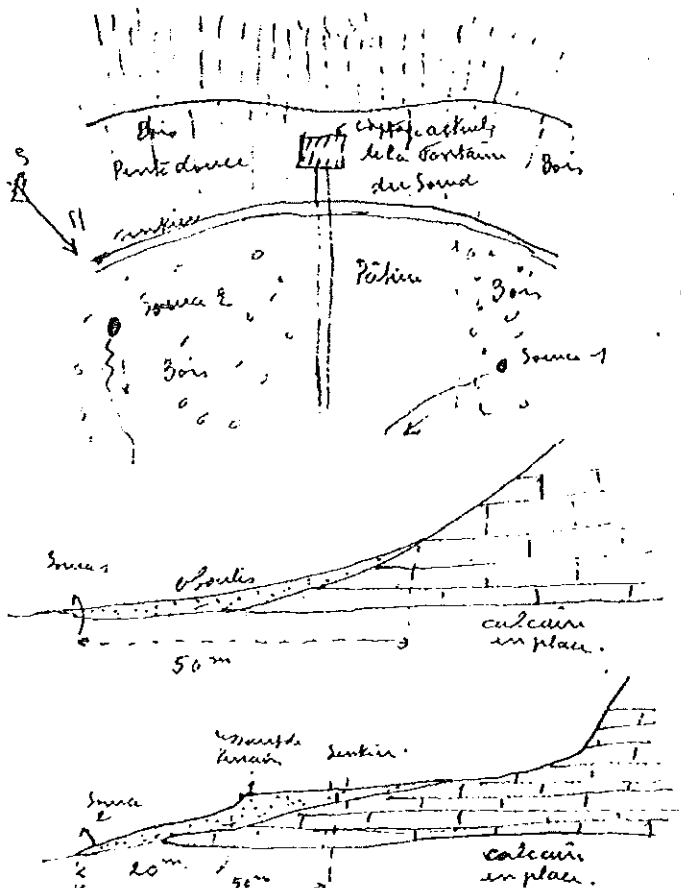 Bois
Pente douce
captage actuel
de la Fontaine
du Sourd
Bois
S
N
sentier
Source 2
Bois
Pâture
Bois
Source 1
Sources
éboulis
calcaire
en place.
50 m
ressaut de
terrain
Sentier.
Source
2
20 m
50 m
calcaire
en place.